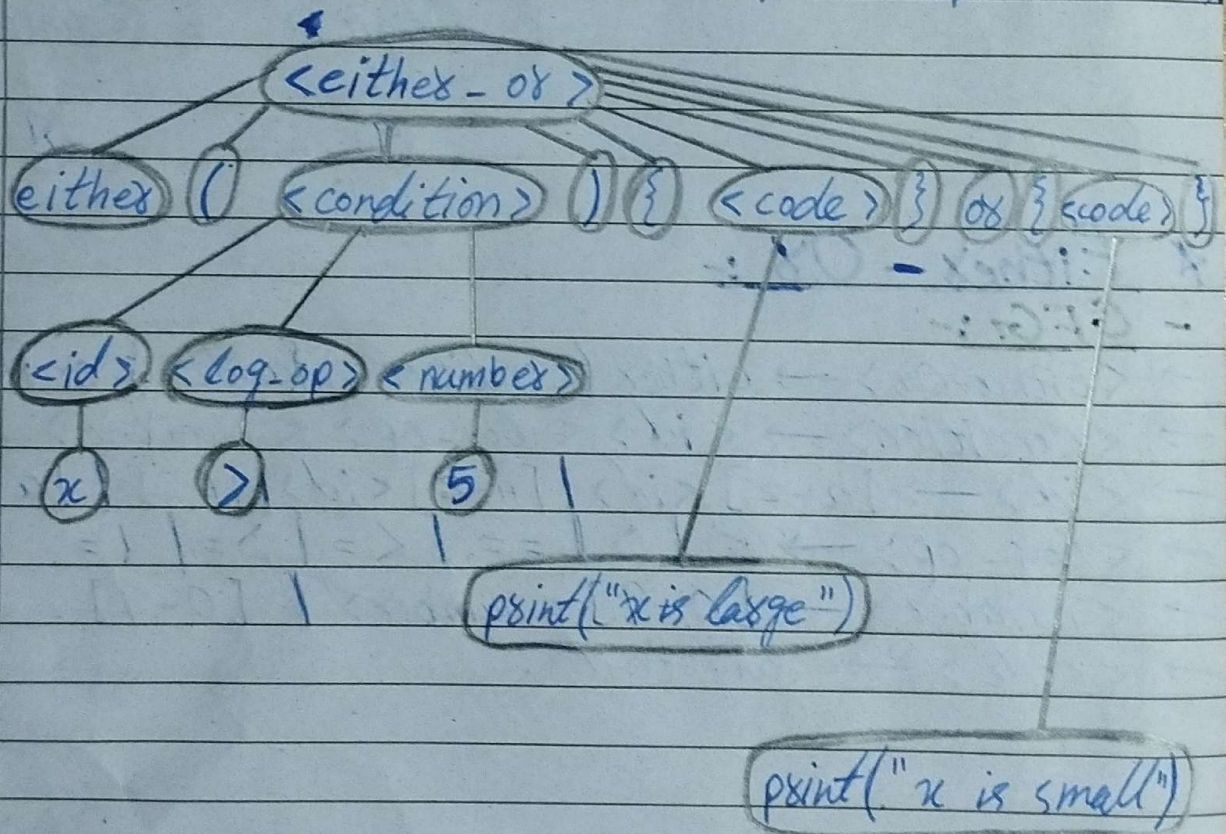 <either_or>
either ( <condition> ) { <code> } or { <code> }
<id> <log_op> <number>
x > 5
print("x is large")
print("x is small")